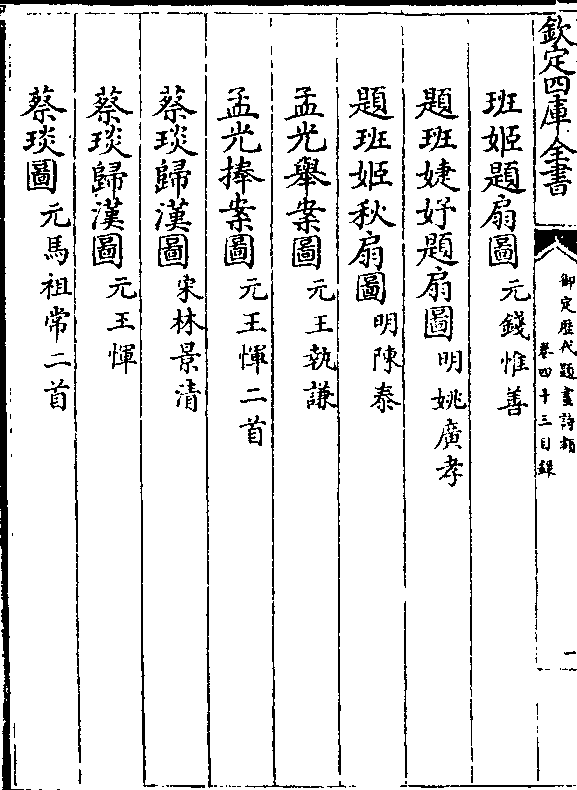 欽定四庫全書
御定歷代題畫詩類
卷四十三目錄
一
班姬題扇圖 元錢惟善
題班婕妤題扇圖 明姚廣孝
題班姬秋扇圖 明陳泰
孟光舉案圖 元王執謙
孟光捧案圖 元王惲二首
蔡琰歸漢圖 宋林景清
蔡琰歸漢圖 元王惲
蔡琰圖 元馬祖常二首